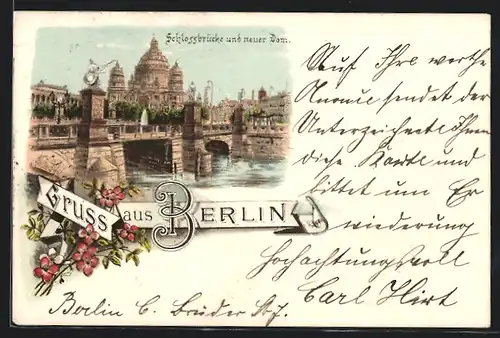 Schlossbrücke und neuer Dom.
Gruss aus Berlin
Auf Ihre werthe
sendet der
Unterzeichnete Ihnen
diese Karte und
bittet um Er
wiederung
Hochachtungsvoll
Carl Hirt
Berlin C. Brüder